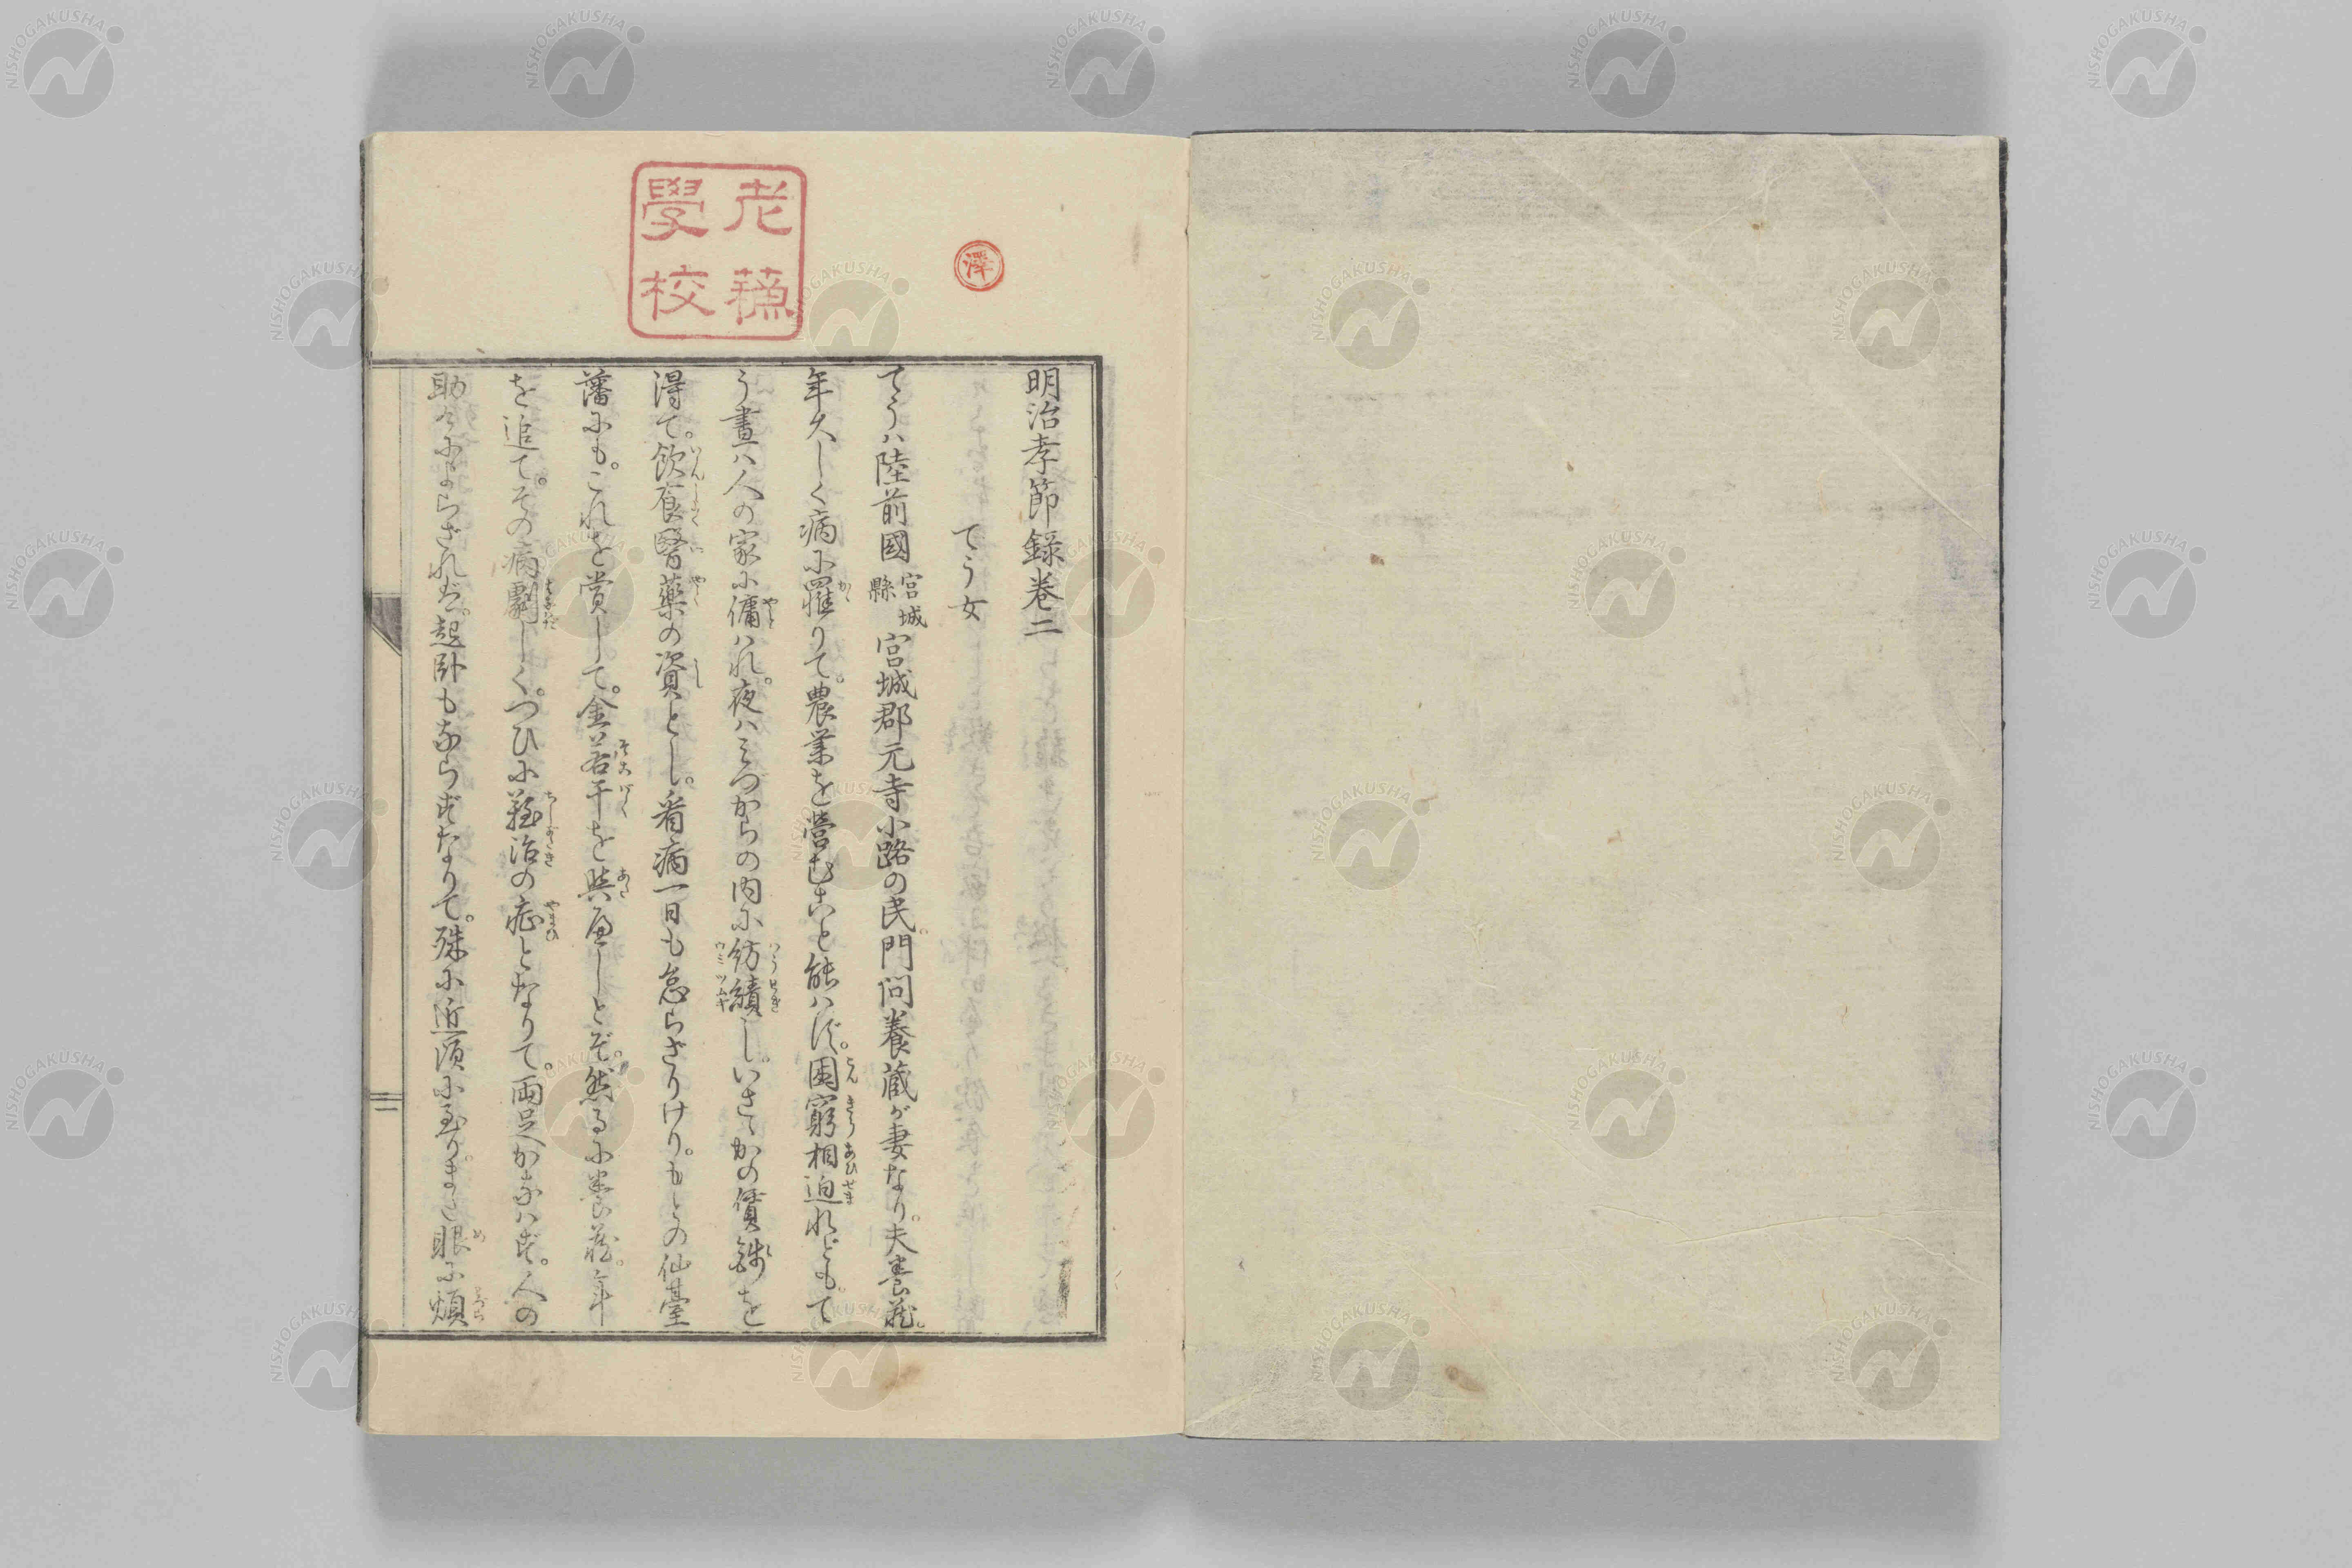 明治孝節錄卷二
てう女
てうハ陸前國宮城縣宮城郡元寺小路の民門間養藏が妻なり。夫養藏。
年久しく病に罹りて。農業を營むこと能ハず。困窮相迫れども。て
う晝ハ人の家に傭ハれ。夜ハみづからの内に紡績し。いさゝかの賃錢を
得て。飮食醫藥の資とし。看病一日も怠らざりけり。もとの仙臺
藩にも。これを賞して。金若干を與へしとぞ。然るに養藏。年
を追て。その病劇しく。つひに難治の症となりて。兩足かなハず。人の
助けによらざれバ。起臥もならずなりて。殊に近頃に至り。また眼に煩
學校
澤
NISHOGAKUSHA